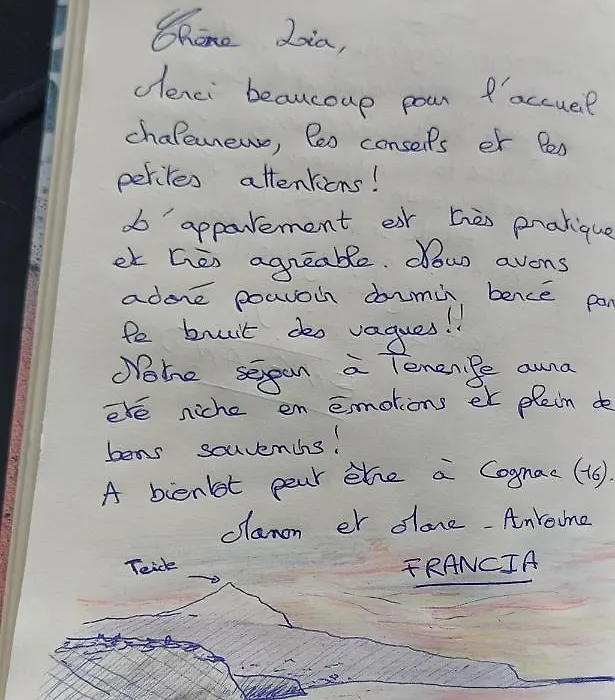 Chère Lia,
Merci beaucoup pour l'accueil
chaleureux, les conseils et les
petites attentions!
L'appartement est très pratique
et très agréable. Nous avons
adoré pouvoir dormir bercé par
le bruit des vagues!!
Notre séjour à Tenerife aura
été riche en émotions et plein de
bons souvenirs!
A bientôt peut être à Cognac (16).
Manon et Marc-Antoine
FRANCIA
Teide